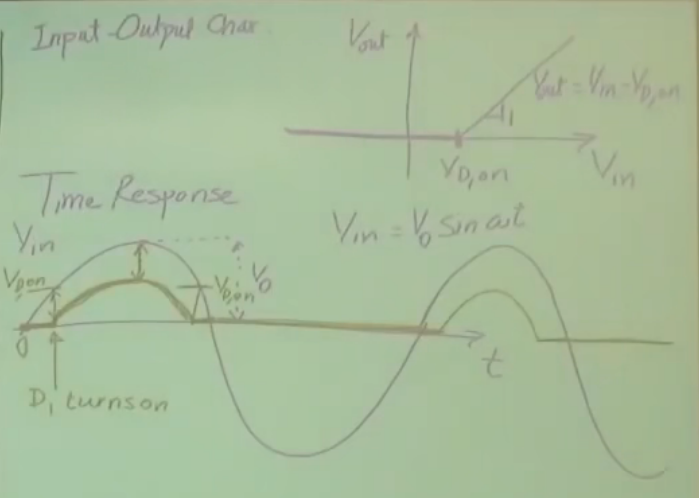 Input-Output Char.
Vout
Vout = Vin - VD,on
1
VD,on
Vin
Time Response
Vin = V0 sin ωt
Vin
VD,on
VD,on
V0
0
t
D1 turns on